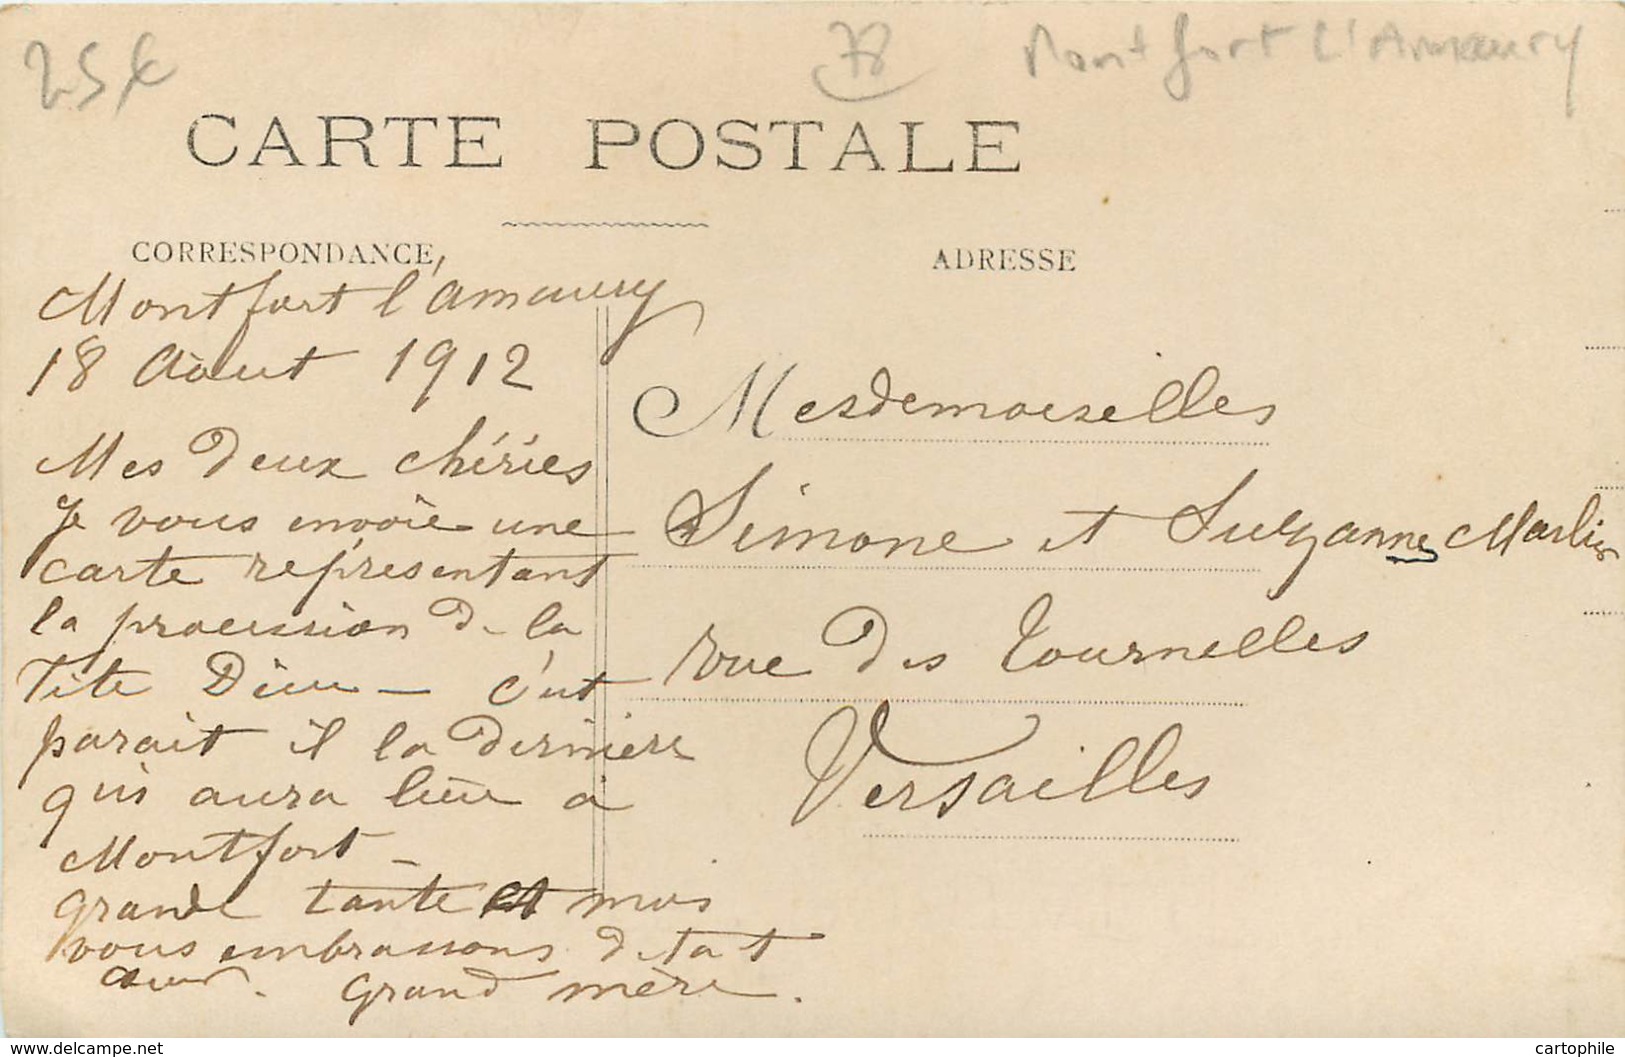 25€
78
Montfort L'Amaury
CARTE POSTALE
CORRESPONDANCE
ADRESSE
Montfort l'Amaury
18 Aout 1912
Mes deux chéries
Je vous envoie une
carte représentant
la procession de la
Fête Dieu — c'est
parait il la dernière
qui aura lieu à
Montfort —
grande tante et moi
vous embrassons de tout
cœur. Grand mère.
Mesdemoiselles
Simone et Suzanne Marlier
rue des Tournelles
Versailles
https://www.delcampe.net
cartophile